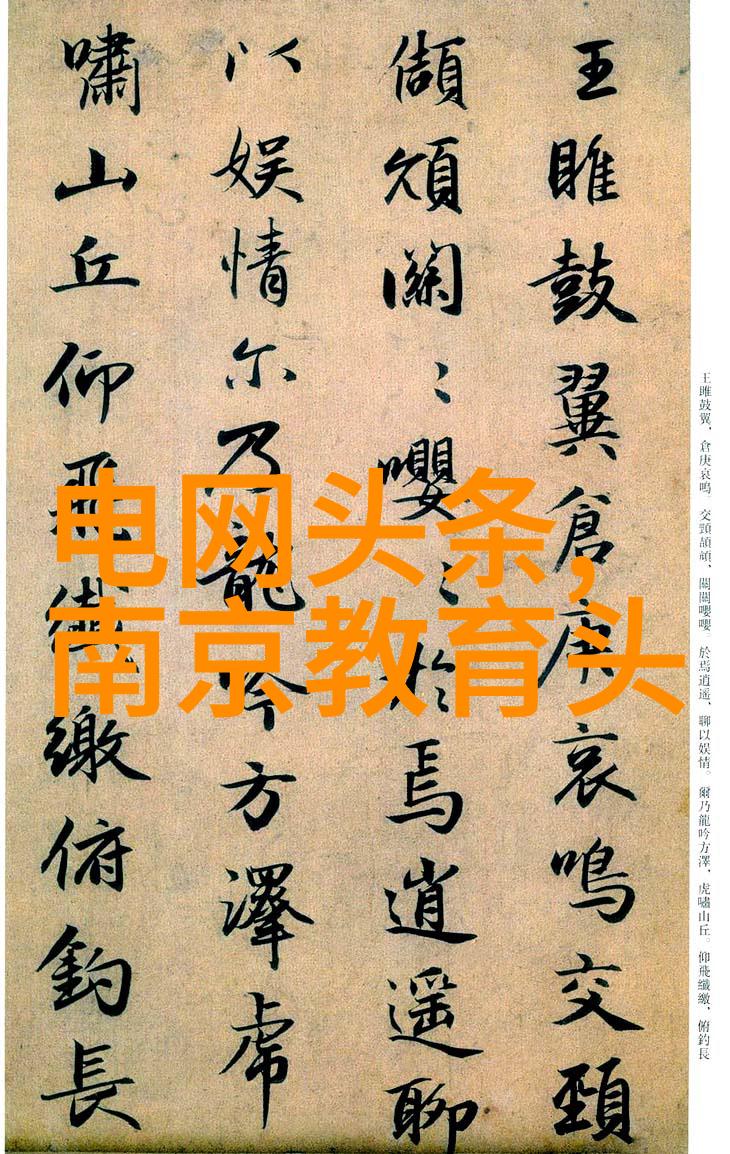 王雎鼓翼倉庚哀鳴交頸
頡頏關〻嚶〻於焉逍遥聊
以娱情尔乃龍吟方澤虎
嘯山丘仰飛纖繳俯釣長
电网头条,
南京教育头
王雎鼓翼、倉庚哀鳴。交頸頡頏、關關嚶嚶。於焉逍遥、聊以娱情。爾乃龍吟方澤、虎嘯山丘。仰飛纖繳、俯釣長